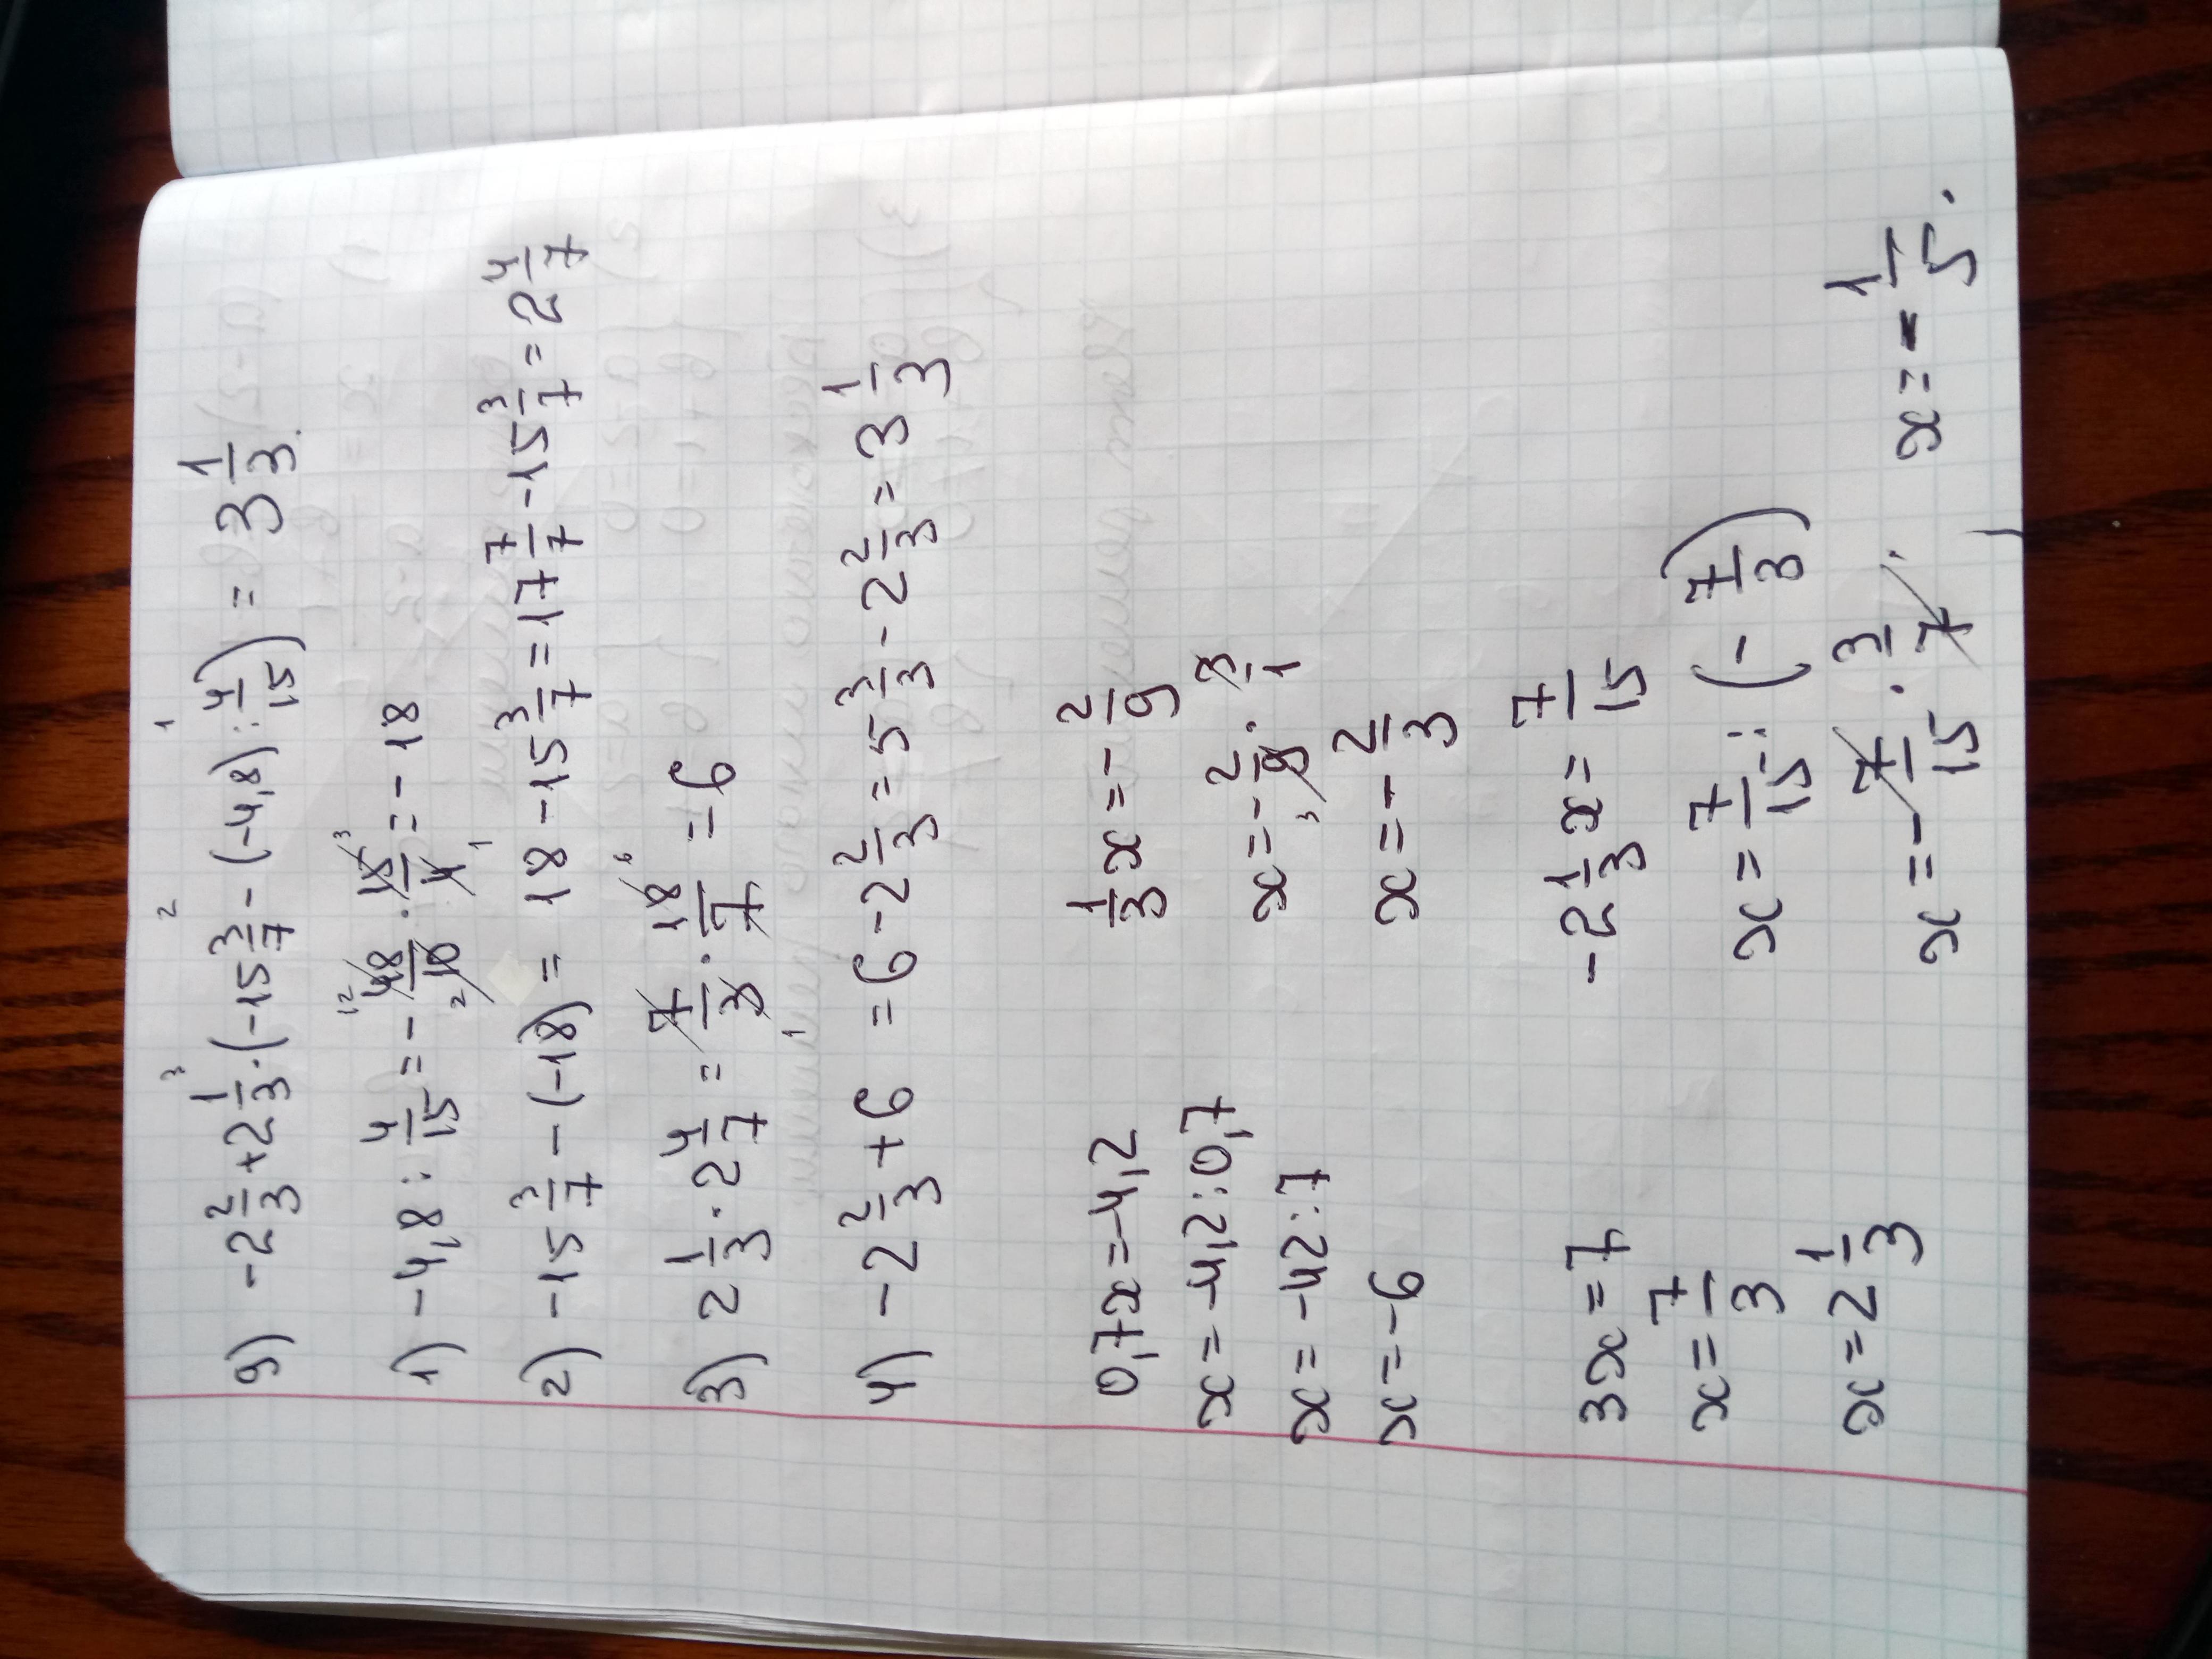 9) -2 2/3 + 2 1/3 · (-15 3/7 - (-4,8) : 4/15) = 3 1/3.
1) -4,8 : 4/15 = - 48/10 · 15/4 = - 18
2) -15 3/7 - (-18) = 18 - 15 3/7 = 17 7/7 - 15 3/7 = 2 4/7
3) 2 1/3 · 2 4/7 = 7/3 · 18/7 = 6
4) - 2 2/3 + 6 = 6 - 2 2/3 = 5 3/3 - 2 2/3 = 3 1/3
0,7x = -4,2
x = -4,2 : 0,7
x = -42 : 7
x = -6
1/3 x = - 2/9
x = - 2/9 · 3/1
x = - 2/3
3x = 7
x = 7/3
x = 2 1/3
-2 1/3 x = 7/15
x = 7/15 : (- 7/3)
x = - 7/15 · 3/7
x = - 1/5.